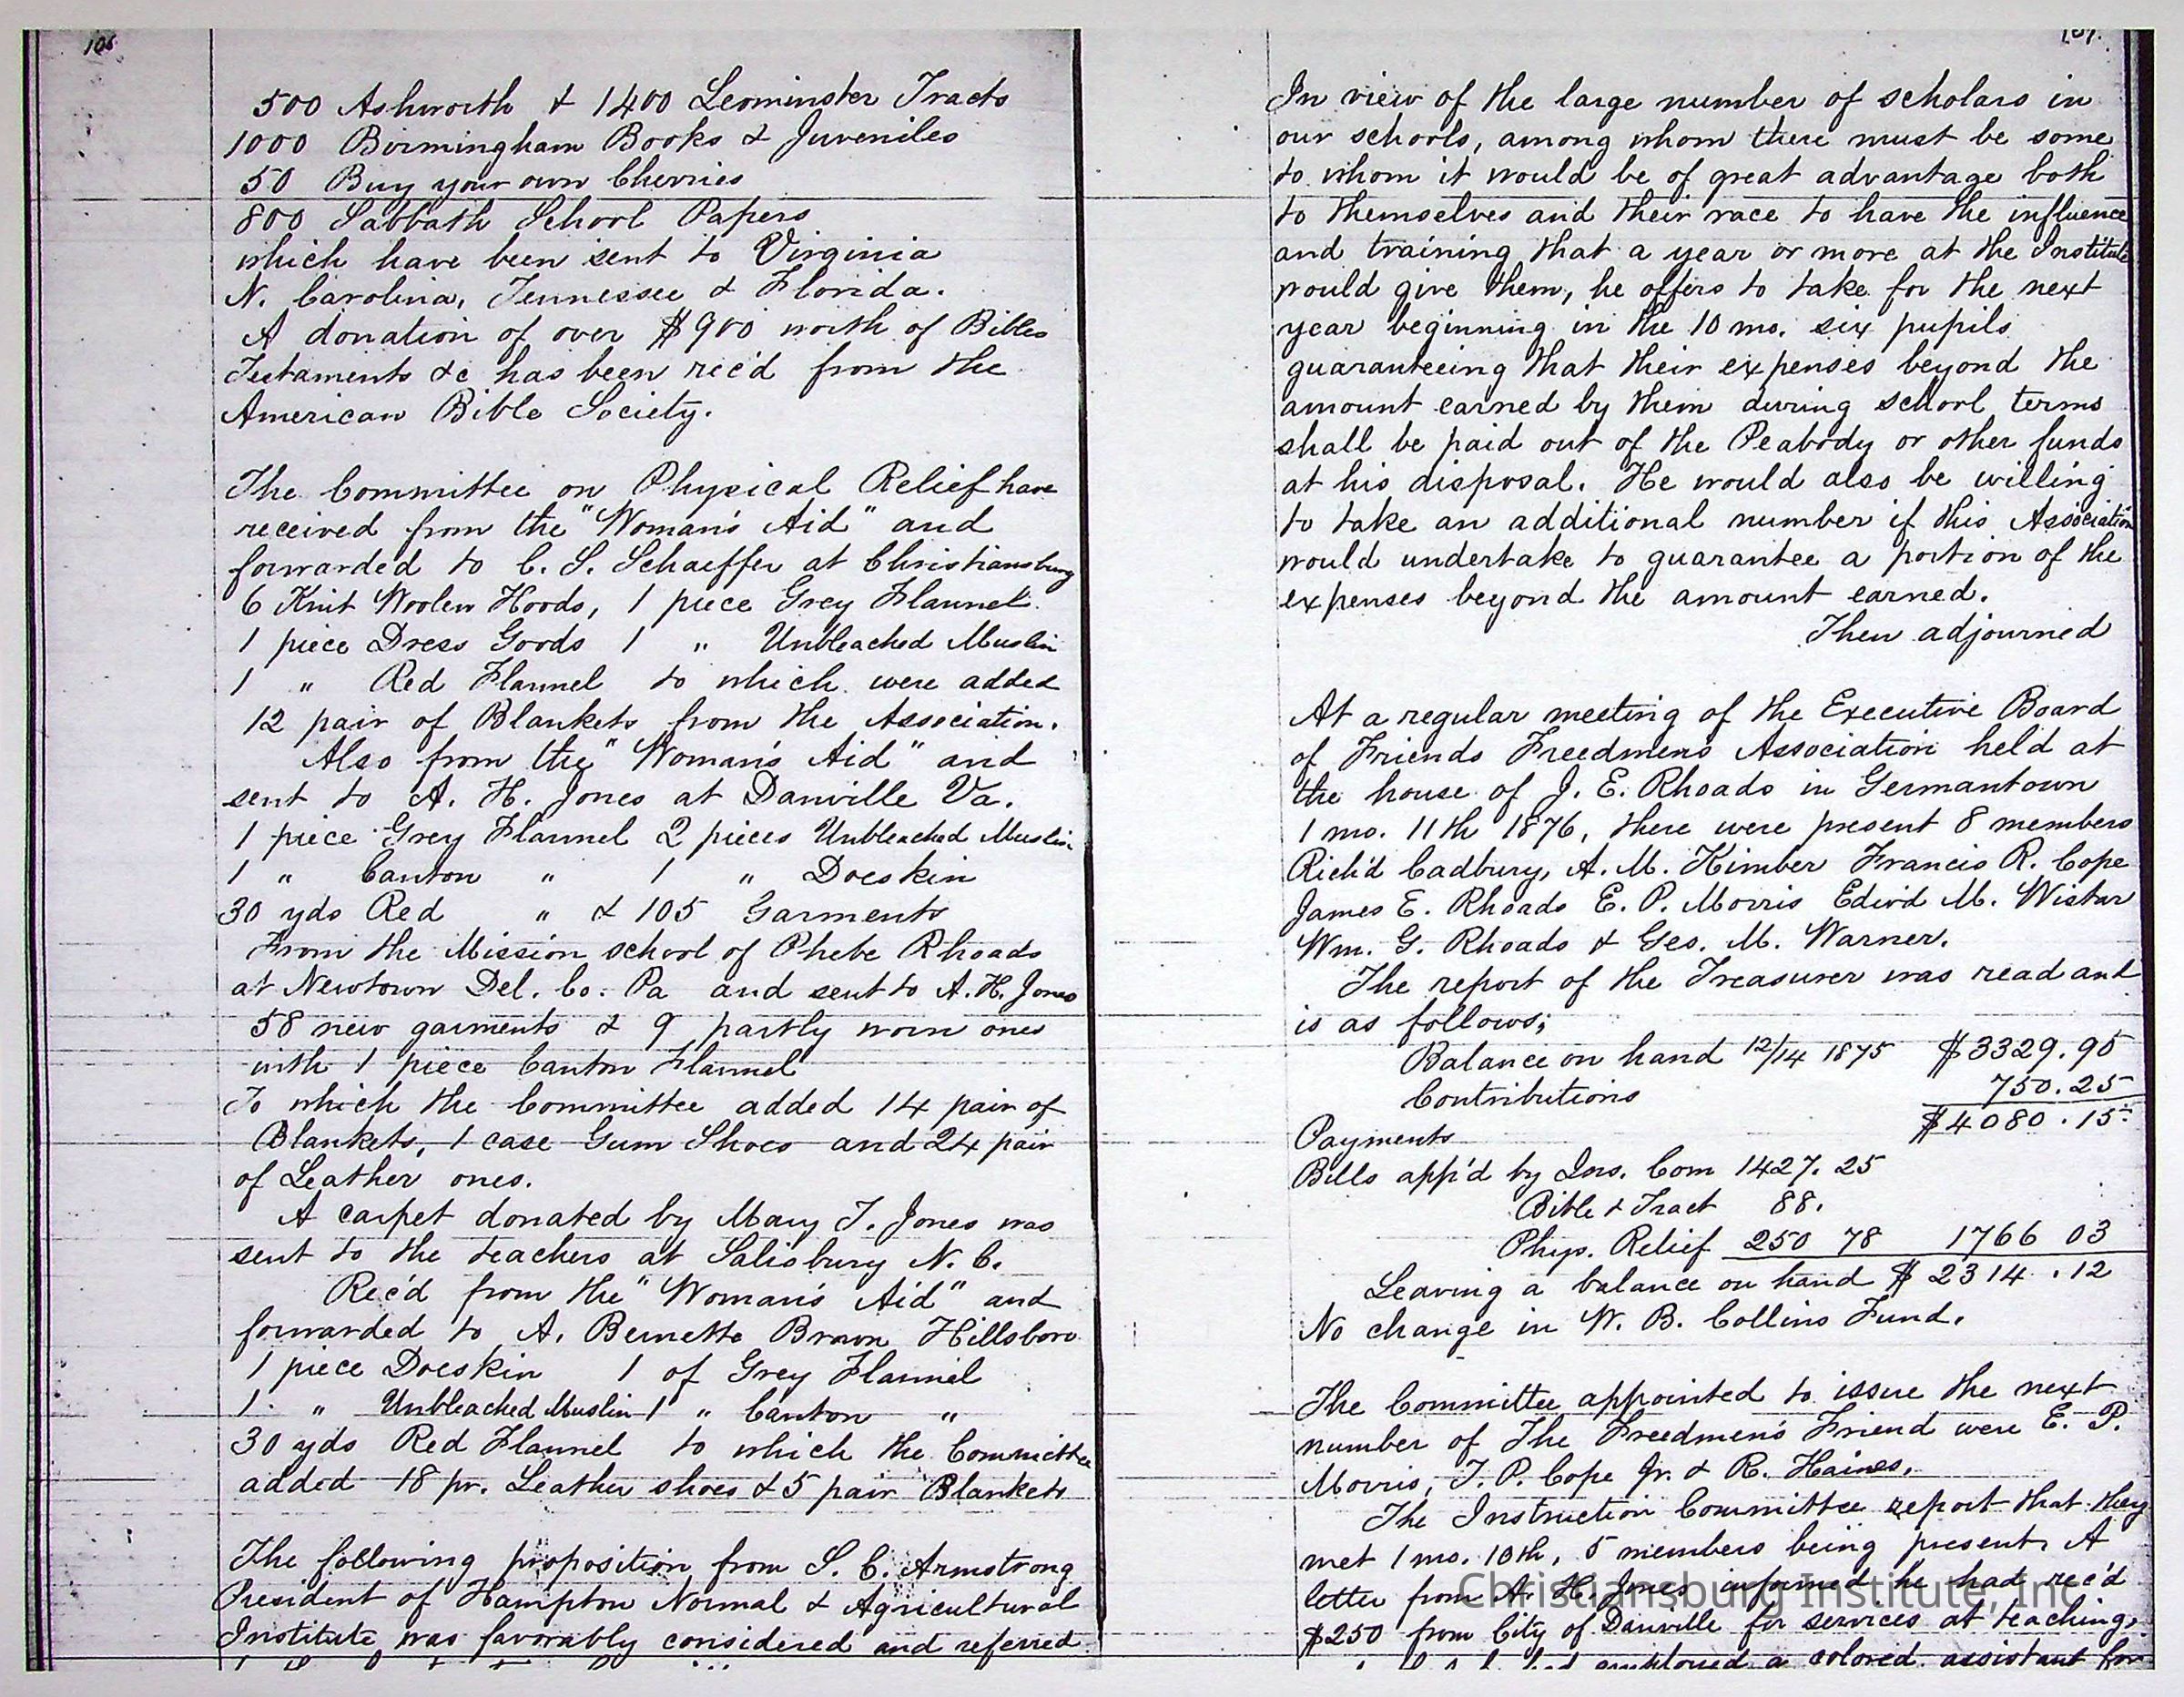 106
500 Ashworth & 1400 Leominster Tracts
1000 Birmingham Books & Juveniles
50 Buy your own Cherries
800 Sabbath School Papers
which have been sent to Virginia
N. Carolina, Tennessee & Florida.
A donation of over $900 worth of Bibles
Testaments &c has been rec'd from the
American Bible Society.
The Committee on Physical Relief have
received from the "Woman's Aid" and
forwarded to C. S. Schaeffer at Christiansburg
6 Knit Woolen Hoods, 1 piece Grey Flannel.
1 piece Dress Goods 1 " Unbleached Muslin
1 " Red Flannel to which were added
12 pair of Blankets from the Association.
Also from the "Woman's Aid" and
sent to A. H. Jones at Danville Va.
1 piece Grey Flannel 2 pieces Unbleached Muslin
1 " Canton " 1 " Doeskin
30 yds Red " & 105 Garments
From the Mission school of Phebe Rhoads
at Newtown Del. Co. Pa and sent to A. H. Jones
58 new garments & 9 partly worn ones
with 1 piece Canton Flannel
To which the Committee added 14 pair of
Blankets, 1 case Gum Shoes and 24 pair
of Leather ones.
A carpet donated by Mary T. Jones was
sent to the teachers at Salisbury N. C.
Rec'd from the "Woman's Aid" and
forwarded to A. Bernetta Brown Hillsboro
1 piece Doeskin 1 of Grey Flannel
1 " Unbleached Muslin 1 " Canton "
30 yds Red Flannel to which the Committee
added 18 pr. Leather shoes & 5 pair Blankets
The following proposition from S. C. Armstrong
President of Hampton Normal & Agricultural
Institute was favorably considered and referred
107.
In view of the large number of scholars in
our schools, among whom there must be some
to whom it would be of great advantage both
to themselves and their race to have the influence
and training that a year or more at the Institute
would give them, he offers to take for the next
year beginning in the 10 mo. six pupils
guaranteeing that their expenses beyond the
amount earned by them during school terms
shall be paid out of the Peabody or other funds
at his disposal. He would also be willing
to take an additional number if this Association
would undertake to guarantee a portion of the
expenses beyond the amount earned.
Then adjourned
At a regular meeting of the Executive Board
of Friends Freedmen's Association held at
the house of J. E. Rhoads in Germantown
1 mo. 11th 1876, there were present 8 members
Rich'd Cadbury, A. M. Kimber Francis R. Cope
James E. Rhoads E. P. Morris Edw'd M. Wistar
Wm. G. Rhoads & Geo. M. Warner.
The report of the Treasurer was read and
is as follows;
Balance on hand 12/14 1875 $3329.90
Contributions 750.25
$4080.15
Payments
Bills app'd by Ins. Com 1427.25
Bible & Tract 88.
Phys. Relief 250 78 1766 03
Leaving a balance on hand $2314.12
No change in W. B. Collins Fund.
The Committee appointed to issue the next
number of The Freedmen's Friend were E. P.
Morris, T. P. Cope Jr. & R. Haines.
The Instruction Committee report that they
met 1 mo. 10th, 5 members being present. A
letter from A. H. Jones informed he had rec'd
$250 from City of Danville for services at teaching,
employed a colored assistant for
Christiansburg Institute, Inc